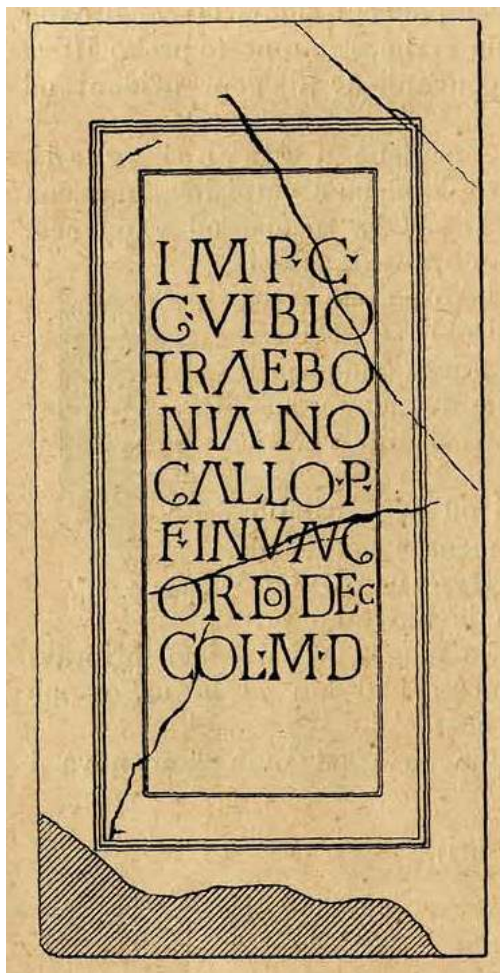 IMP·C·
C·VIBIO
TRAEBO
NIANO
GALLO·P·
F·INVAVG
ORDO DEC
COL·M·D